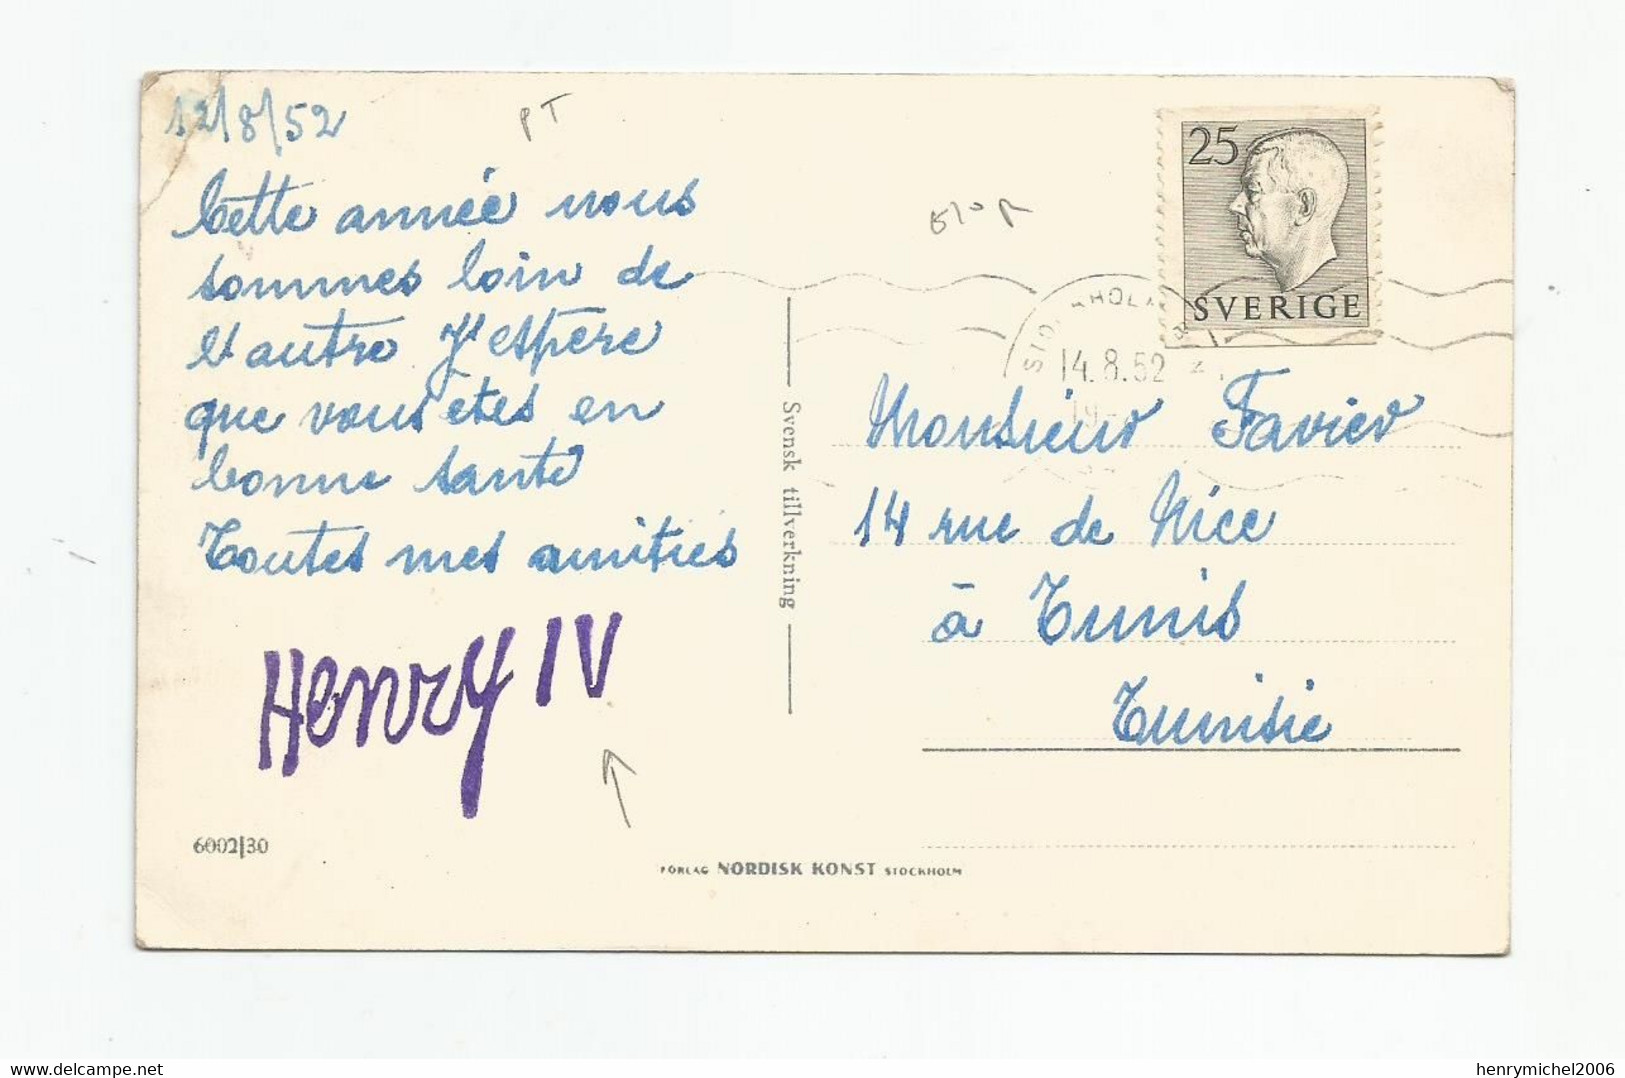 12/8/52
PT
Cette année nous
sommes loin de
l'autre J'espère
que vous êtes en
bonne santé
Toutes mes amitiés
Henry IV
6002/30
Svensk tillverkning
FÖRLAG NORDISK KONST STOCKHOLM
25
SVERIGE
14.8.52
Monsieur Favier
14 rue de Nice
à Tunis
Tunisie
delcampe.net
henrymichel2006